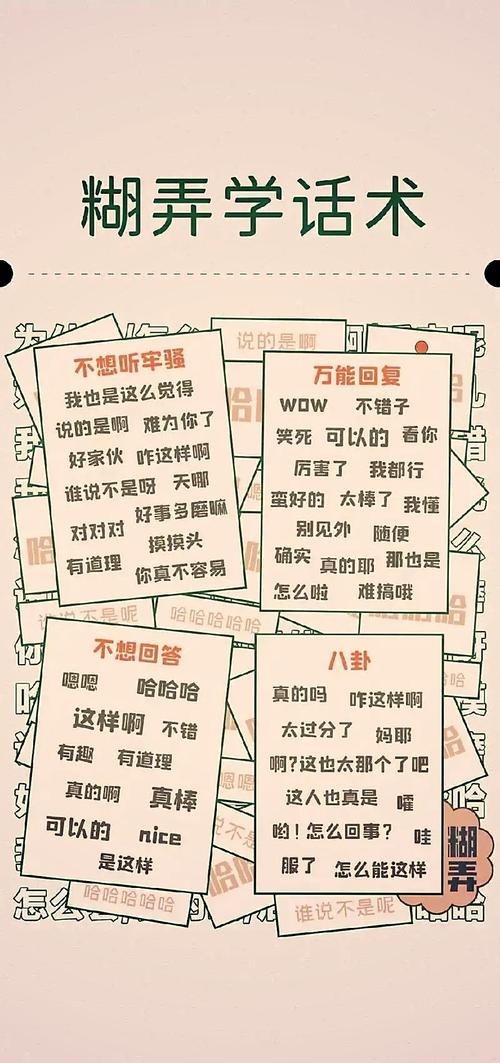 糊弄学话术
说的是啊
不想听牢骚
我也是这么觉得
说的是啊 难为你了
好家伙 咋这样啊
谁说不是呀 天哪
对对对 好事多磨嘛
有道理 摸摸头
你真不容易
万能回复
WOW 不错子
笑死 可以的 看你
厉害了 我都行
蛮好的 太棒了 我懂
别见外 随便
确实 真的耶 那也是
怎么啦 难搞哦
谁说不是呢
哈哈哈哈哈
不想回答
嗯嗯 哈哈哈
这样啊 不错
有趣 有道理
真的啊 真棒
可以的 nice
是这样
八卦
真的吗 咋这样啊
太过分了 妈耶
啊?这也太那个了吧
这人也真是 嚯
哟!怎么回事? 哇
服了 怎么能这样
糊弄
哈哈哈哈哈
谁说不是呢